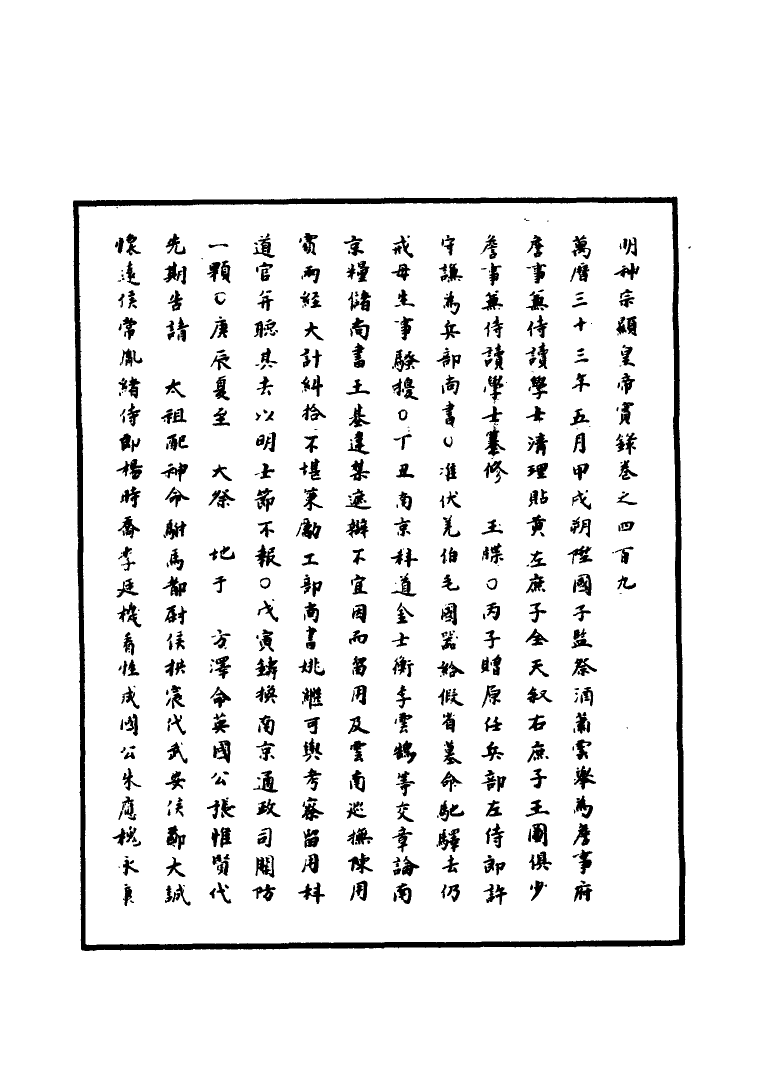 明神宗顯皇帝實錄卷之四百九
萬曆三十三年五月甲戌朔陞國子監祭酒蕭雲舉為詹事府
詹事兼侍讀學士清理貼黃左庶子全天叙右庶子王圖俱少
詹事兼侍讀學士纂修 玉牒○丙子贈原任兵部左侍郎許
守謙為兵部尚書○准伏羌伯毛國器給假省墓命馳驛去仍
戒毋生事騷擾○丁丑南京科道金士衡李雲鵠等交章論南
京糧儲尚書王基違禁遮辦不宜因而留用及雲南巡撫陳用
賓兩經大計糾拾不堪策勵工部尚書姚繼可與考察留用科
道官并聽其去以明士節不報○戊寅鑄換南京通政司關防
一顆○庚辰夏至 大祭 地于 方澤命英國公張惟賢代
先期告請 太祖配神命駙馬都尉侯拱宸代武安侯鄭大誠
懷遠侯常胤緒侍郎楊時喬李廷機看牲成國公朱應槐永康